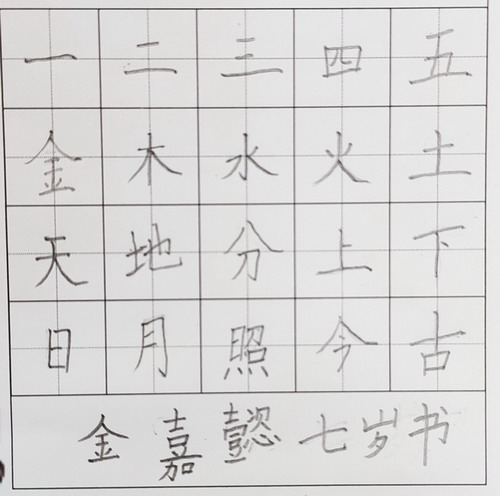 一二三四五
金木水火土
天地分上下
日月照今古
金嘉懿七岁书